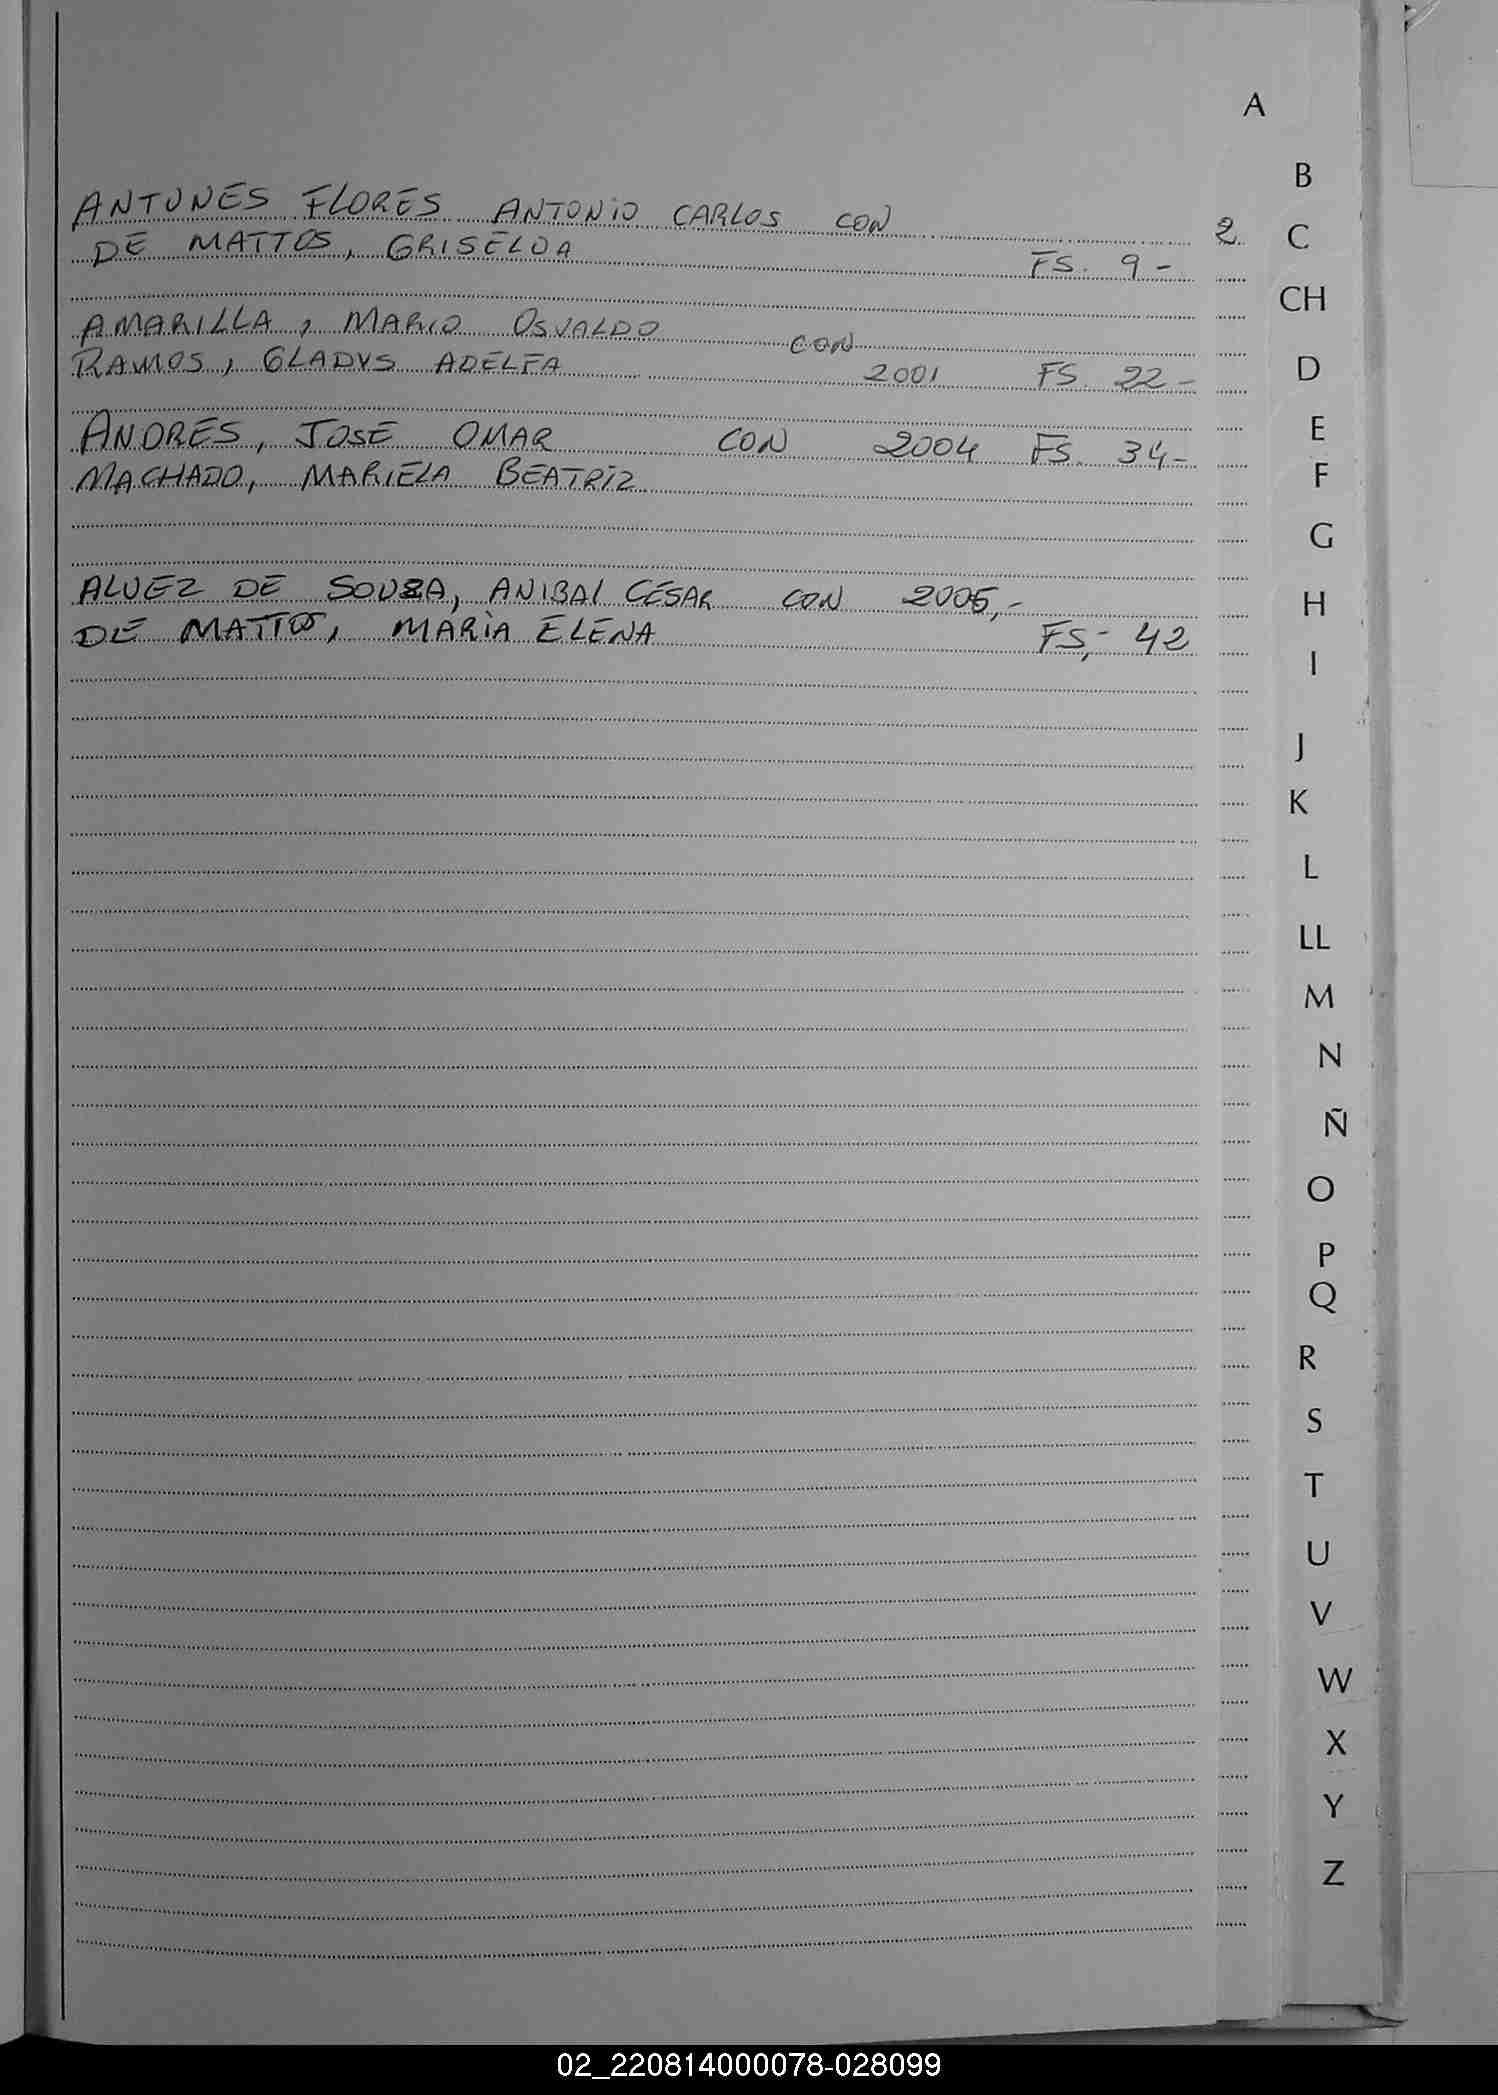 A
B
ANTUNES FLORES ANTONIO CARLOS CON 2
C
DE MATTOS, GRISELDA FS. 9 -
CH
AMARILLA, MARIO OSVALDO CON
RAMOS, GLADYS ADELFA 2001 FS. 22 -
D
ANDRES, JOSE OMAR CON 2004 FS. 34 -
E
MACHADO, MARIELA BEATRIZ
F
G
ALVEZ DE SOUZA, ANIBAL CÉSAR CON 2005,-
H
DE MATTOS, MARÌA ELENA FS,- 42
I
J
K
L
LL
M
N
Ñ
O
P
Q
R
S
T
U
V
W
X
Y
Z
02_220814000078-028099